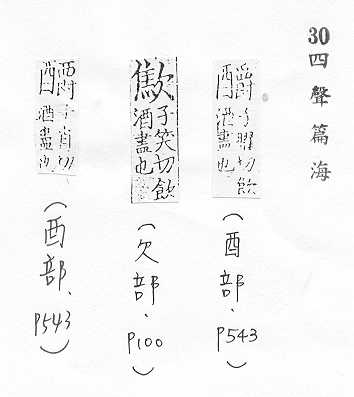 30 四聲篇海
釂子曜切飲
酒盡也
(酉部、P543)
子笑切飲
酒盡也
(欠部、P100)
釂子肖切
酒盡也
(酉部、P543)